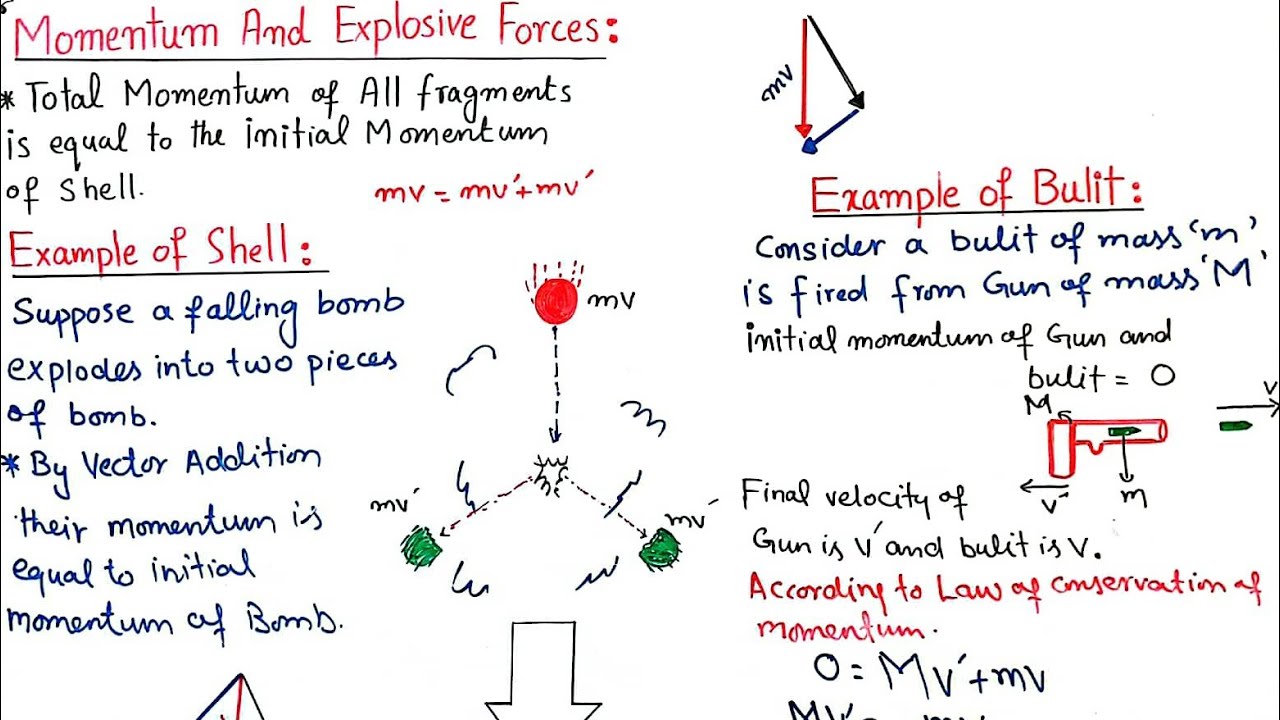 Momentum And Explosive Forces:
* Total Momentum of All fragments
is equal to the initial Momentum
of Shell.
mv = mv'+mv'
Example of Shell:
Suppose a falling bomb
explodes into two pieces
of bomb.
* By Vector Addition
their momentum is
equal to initial
momentum of Bomb.
mv
mv'
mv'
mv
Example of Bulit:
Consider a bulit of mass 'm'
is fired from Gun of mass 'M'
initial momentum of Gun and
bulit = 0
M
v
v'
m
Final velocity of
Gun is v' and bulit is v.
According to Law of conservation of
momentum.
0 = Mv'+mv